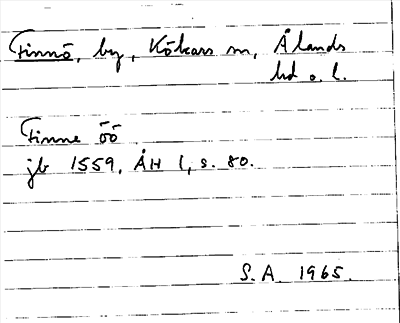 Finnö, by, Kökars sn, Ålands
hd o. l.
Finne öö
jb 1559, ÅH 1, s. 80.
S. A. 1965.